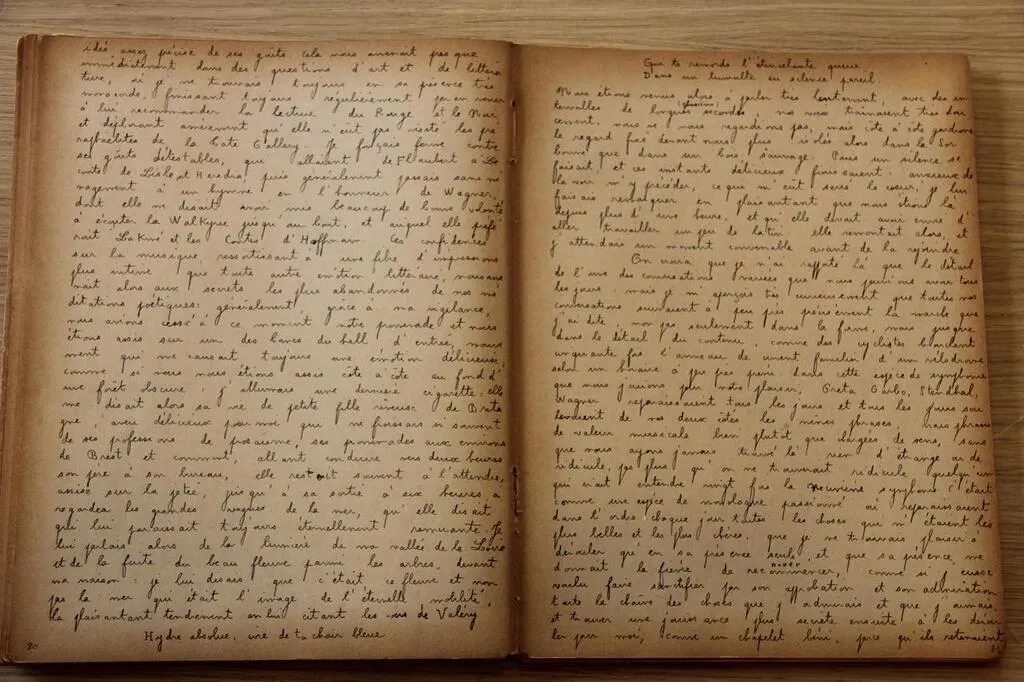 idée assez précise de ses goûts. Cela nous amenait presque
immédiatement dans des questions d'art et de littéra
ture, où je me trouvais toujours en sa présence très
monocorde, finissant toujours régulièrement par en venir
à lui recommander la lecture du Rouge et le Noir
et déplorant amèrement qu'elle n'eût pas visité les pré
raphaélites de la Tate Gallery. Je fonçais ferme contre
ses goûts détestables, qui allaient de Flaubert à Le
conte de Lisle et Heredia, puis généralement passais sans mé
nagement à un hymne en l'honneur de Wagner,
dont elle me disait avoir mis beaucoup de bonne volonté
à écouter la Walkyrie jusqu'au bout, et auquel elle préfé
rait Lakmé et les Contes d'Hoffmann. Ces confidences
sur la musique, ressortissant à une fibre d'impressions
plus intime que toute autre émotion littéraire, nous ame
nait alors aux secrets les plus abandonnés de nos mé
ditations poétiques: généralement, grâce à ma vigilance,
nous avions cessé à ce moment notre promenade et nous
étions assis sur un des bancs du hall d'entrée, mouve
ment qui me causait toujours une émotion délicieuse,
comme si nous nous étions assis côte à côte au fond d'
une forêt obscure: j'allumais une dernière cigarette: elle
me disait alors sa vie de petite fille rêveuse de Breta
gne, aveu délicieux pour moi qui me froissais si souvent
de ses professions de prosaïsme, ses promenades aux environs
de Brest et comment, allant conduire vers deux heures
son père à son bureau, elle restait souvent à l'attendre,
assise sur la jetée, jusqu'à sa sortie à six heures, à
regarder les grandes vagues de la mer, qu'elle disait
qui lui paraissait toujours éternellement remuante. Je
lui parlais alors de la lumière de ma vallée de la Loire
et de la fuite du beau fleuve parmi les arbres, devant
ma maison: je lui disais que c'était ce fleuve et non
pas la mer qui était l'image de l'éternelle mobilité,
la plaisantant tendrement en lui citant les vers de Valéry
Hydre absolue, ivre de ta chair bleue
80
Qui te remords l'étincelante queue
Dans un tumulte au silence pareil
Nous étions venus alors à parler très lentement, avec des in
tervalles de longues secondes, nos voix traînaient très dou
cement, nous ne nous regardions pas, mais côte à côte gardions
le regard fixé devant nous, plus isolés alors dans la Sor
bonne que dans un bois sauvage. Puis un silence se
faisait, et ces instants délicieux finissaient: anxieux de
la voir m'y précéder, ce qui m'eût serré le coeur, je lui
faisais remarquer en plaisantant que nous étions là
depuis plus d'une heure, et qu'elle devait avoir envie d'
aller travailler un peu de latin: elle remontait alors, et
j'attendais un moment convenable avant de la rejoindre.
On croira que je n'ai rapporté là que le détail
de l'une des conversations variées que nous pouvions avoir tous
les jours: mais je m'aperçois très curieusement que toutes nos
conversations suivaient à peu près précisément la marche que
j'ai dite, non pas seulement dans la forme, mais jusque
dans le détail du contenu, comme des cyclistes bouclent
cinquante fois l'anneau de ciment familier d'un vélodrome
selon un horaire à peu près pareil. dans cette espèce de symphonie
que nous jouions pour notre plaisir, Greta Garbo, Stendhal,
Wagner reparaissaient tous les jours et tous les jours sou
levaient de nos deux côtés les mêmes phrases, mais phrases
de valeur musicale bien plutôt que chargées de sens, sans
que nous ayons jamais trouvé là rien d'étrange ou de
ridicule, pas plus qu'on ne trouverait ridicule quelqu'un
qui irait entendre vingt fois la neuvième symphonie. C'était
comme une espèce de monologue passionné où reparaissaient
dans l'ordre chaque jour toutes les choses qui m'étaient les
plus belles et les plus chères, que je ne trouvais plaisir à
dérouler qu'en sa présence seule, et que sa présence me
donnait la fièvre de recommencer, comme si j'eusse
voulu faire sanctifier par son approbation et son admiration
toute la chaîne des choses que j'admirais et que j'aimais,
et trouver une jouissance plus secrète ensuite à les dérou
ler pour moi, comme un chapelet béni, parce qu'ils retenaient